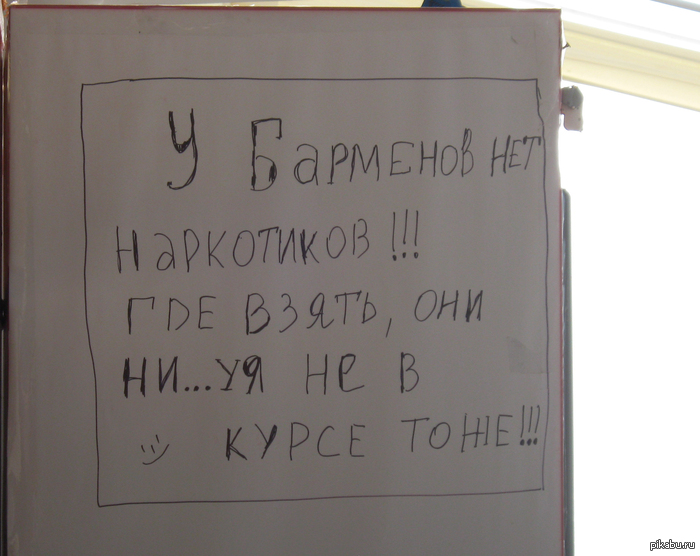 У Барменов нет
наркотиков!!!
где взять, они
ни...уя не в
курсе тоже!!!
pikabu.ru